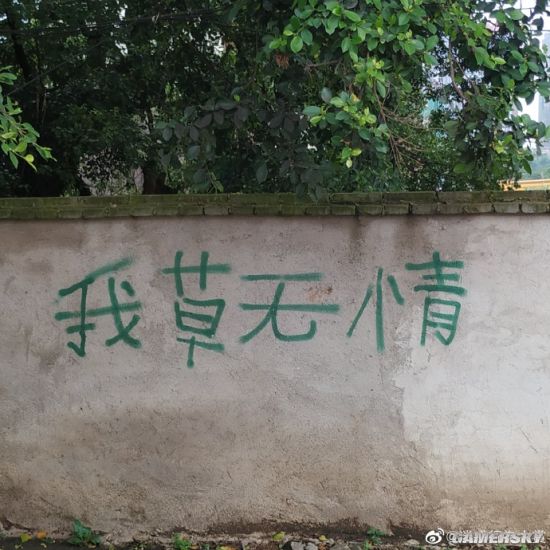 我草无情
GAMERSKY